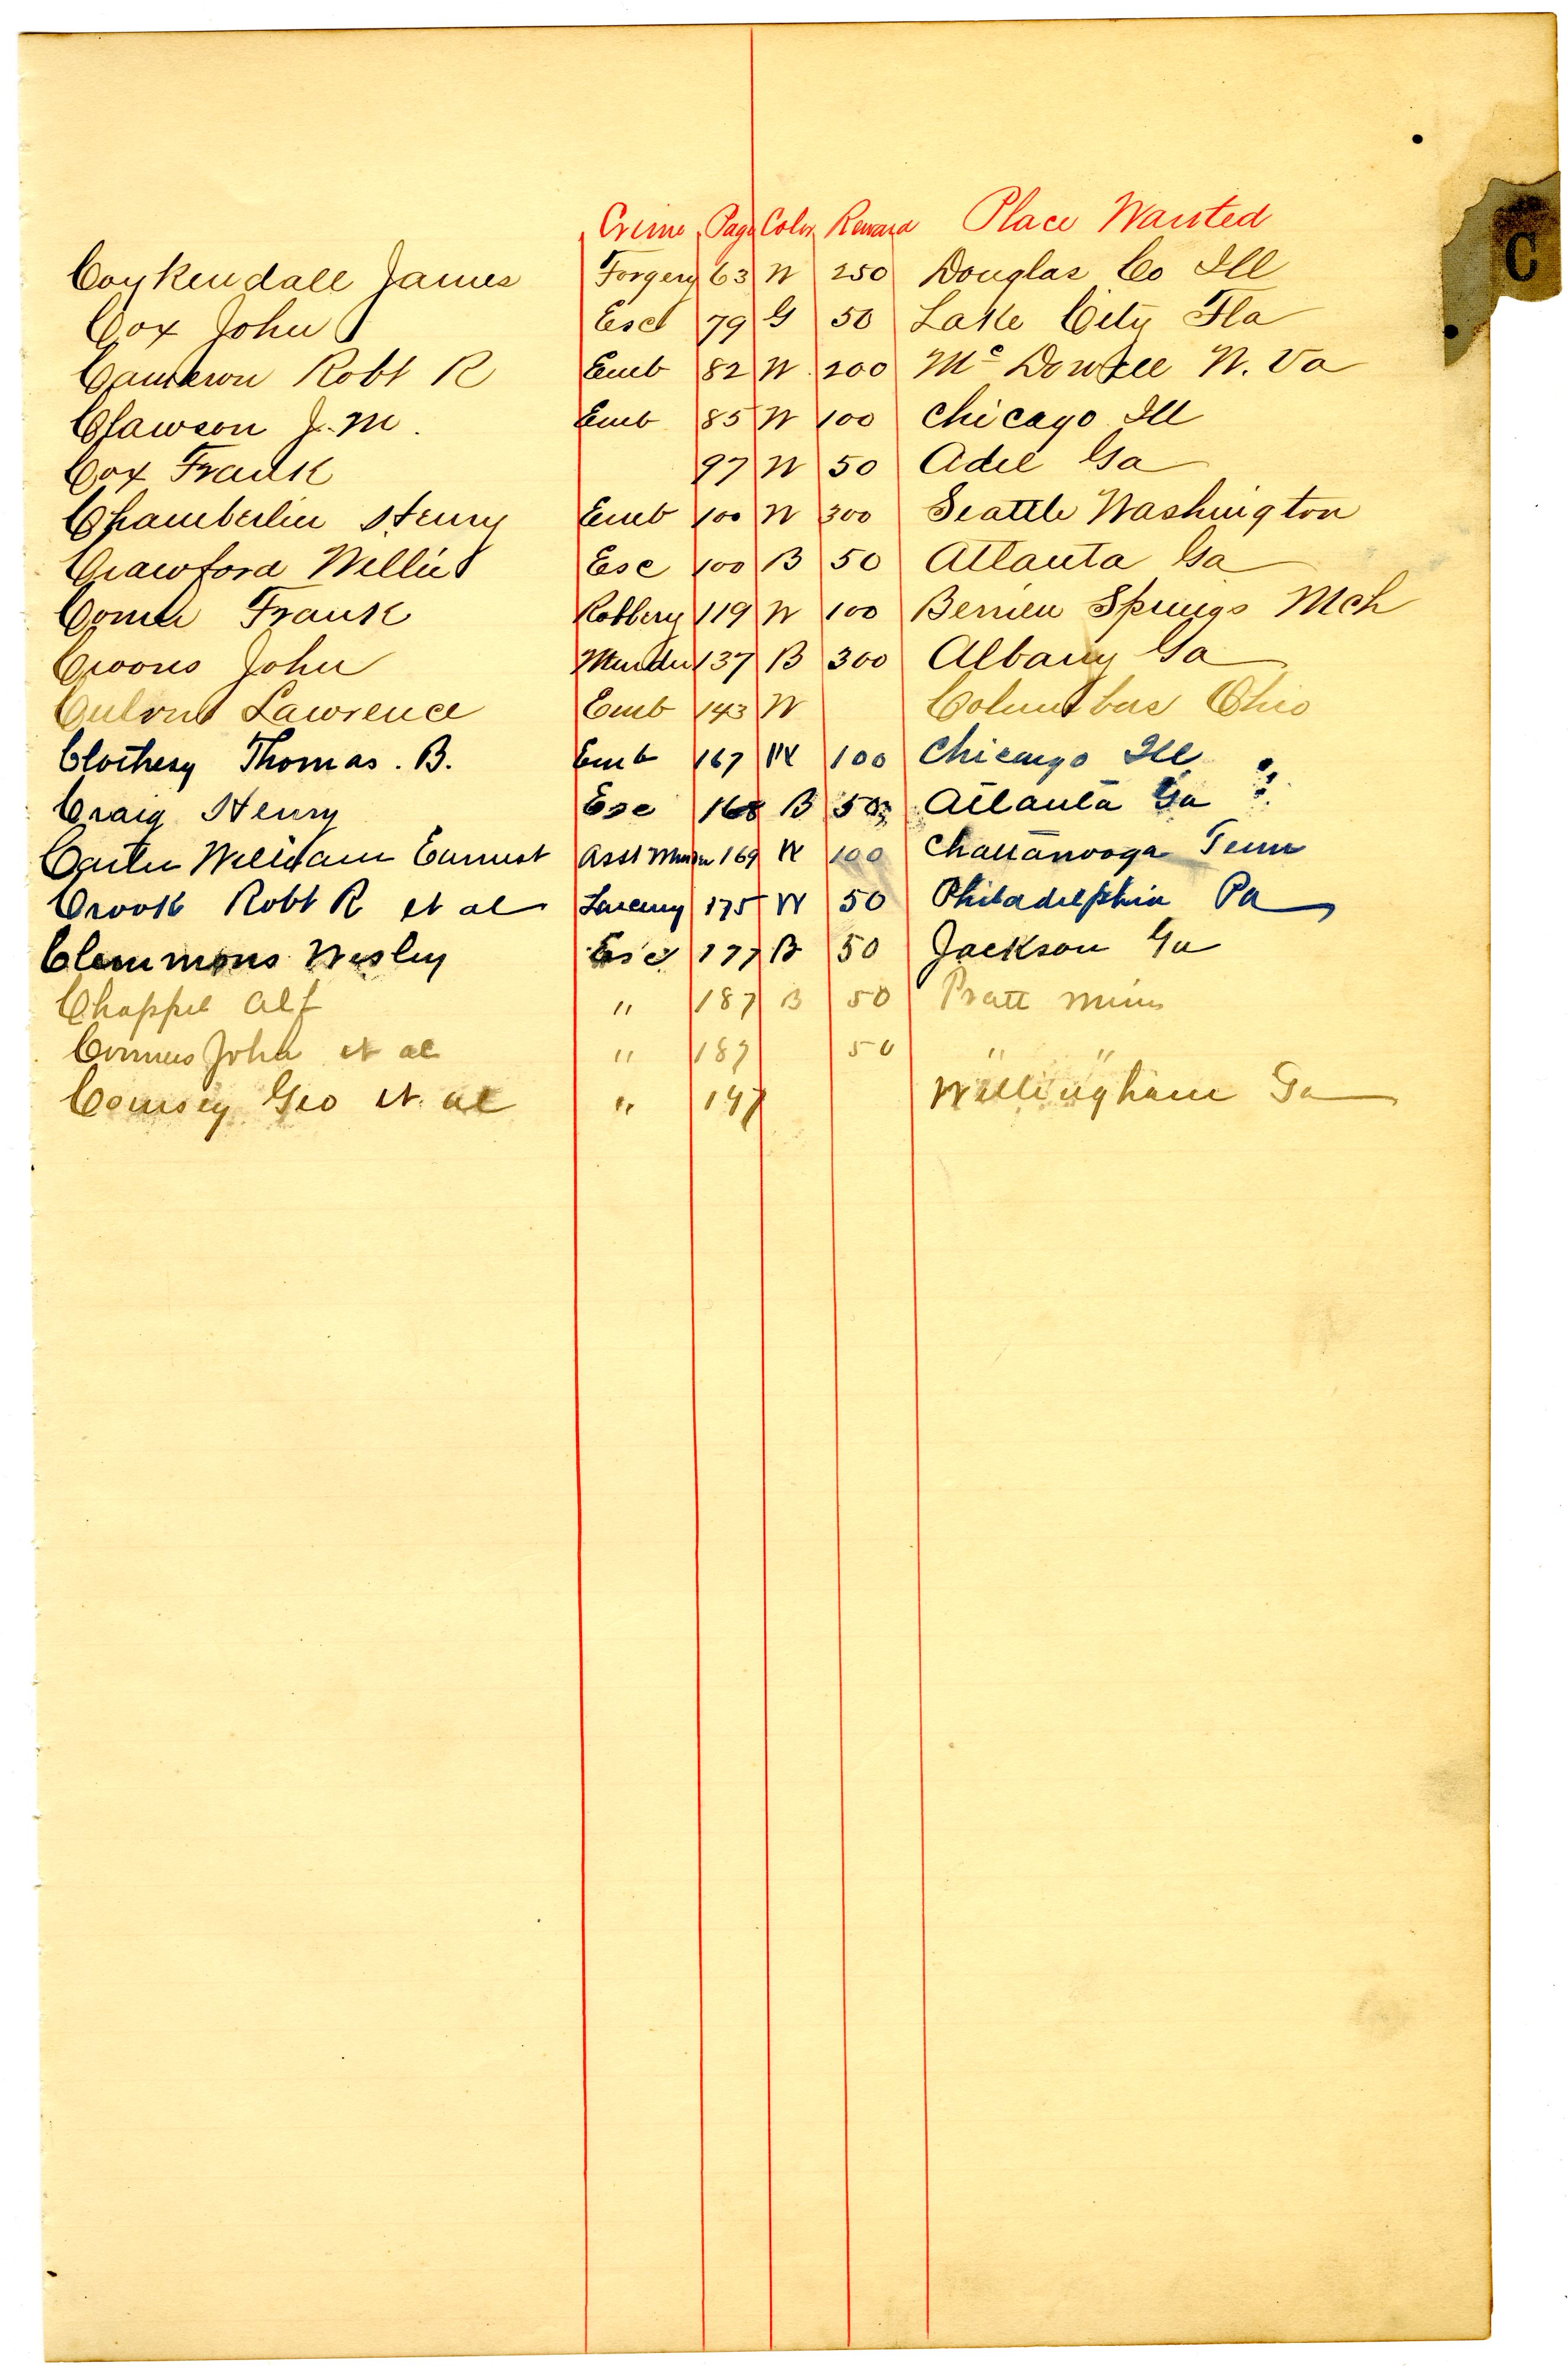 C
Crime Page Color Reward Place Wanted
Coykendall James Forgery 63 W 250 Douglas Co Ill
Cox John Esc 79 G 50 Lake City Fla
Cameron Robt R Emb 82 W 200 Mc Dowell W. Va
Clawson J. M. Emb 85 W 100 Chicago Ill
Cox Frank 97 W 50 Adel Ga
Chamberlin Henry Emb 100 W 300 Seattle Washington
Crawford Willie Esc 100 B 50 Atlanta Ga
Comer Frank Robbery 119 W 100 Berrien Springs Mch
Croons John Murder 137 B 300 Albany Ga
Lawrence Emb 143 W Columbus Ohio
Clothesy Thomas. B. Emb 167 W 100 Chicago Ill
Craig Henry Esc 168 B 50 Atlanta Ga ?
Carter William Earnest Asst Murder 169 W 100 Chattanooga Tenn
Crook Robt R et al Larceny 175 W 50 Philadelphia Pa
Clemmons Wesley Esc 177 B 50 Jackson Ga
Chappel Alf " 187 B 50 Pratt Mines
John et al " 187 50 " "
Geo et al " 197 Willingham Ga